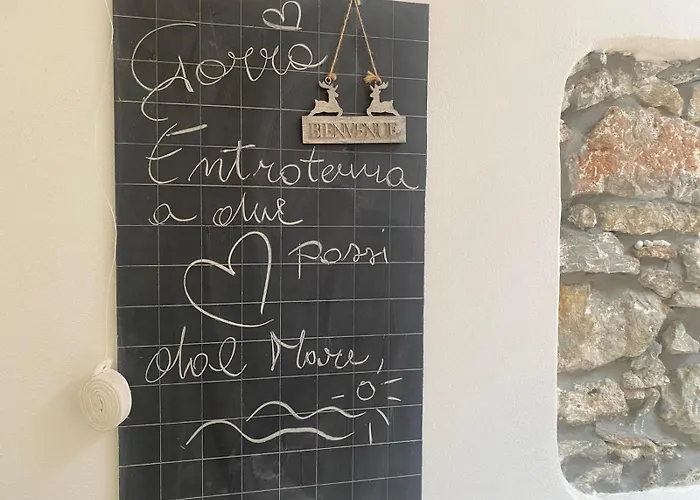 Gorra
BIENVENUE
Entroterra
a due
passi
dal Mare,